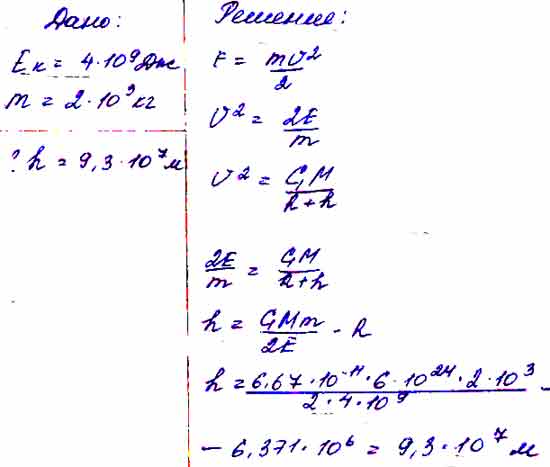 Дано:
Eк = 4·10⁹ Дж
m = 2·10³ кг
? h = 9,3·10⁷ м
Решение:
F = mv²/2
v² = 2E/m
v² = GM/(R+h)
2E/m = GM/(R+h)
h = GMm/2E - R
h = 6,67·10⁻¹¹·6·10²⁴·2·10³/2·4·10⁹ -
- 6,371·10⁶ = 9,3·10⁷ м